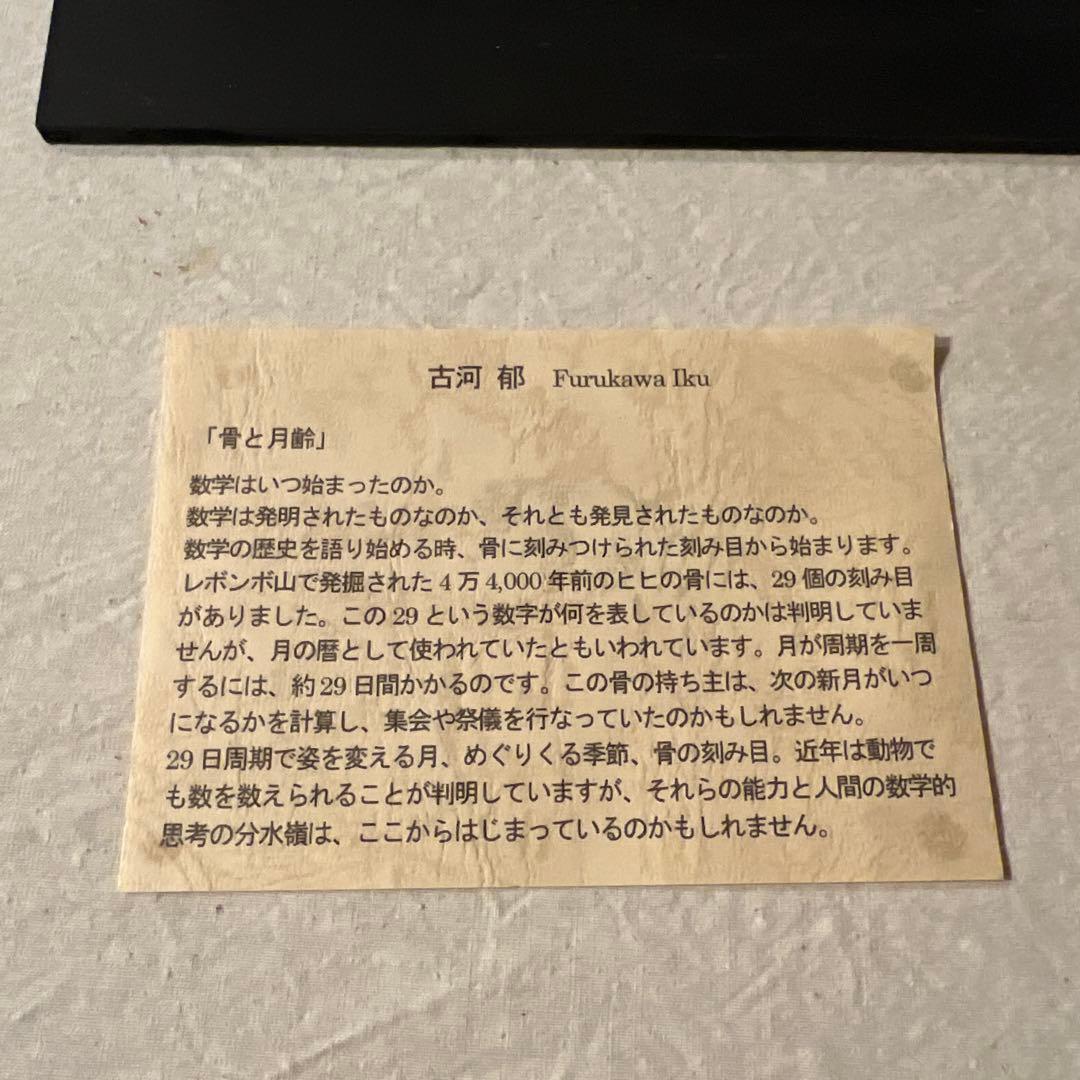 古河 郁 Furukawa Iku
「骨と月齢」
数学はいつ始まったのか。
数学は発明されたものなのか、それとも発見されたものなのか。
数学の歴史を語り始める時、骨に刻みつけられた刻み目から始まります。
レボンボ山で発掘された 4 万 4,000 年前のヒヒの骨には、29 個の刻み目
がありました。この 29 という数字が何を表しているのかは判明していま
せんが、月の暦として使われていたともいわれています。月が周期を一周
するには、約 29 日間かかるのです。この骨の持ち主は、次の新月がいつ
になるかを計算し、集会や祭儀を行なっていたのかもしれません。
29 日周期で姿を変える月、めぐりくる季節、骨の刻み目。近年は動物で
も数を数えられることが判明していますが、それらの能力と人間の数学的
思考の分水嶺は、ここからはじまっているのかもしれません。